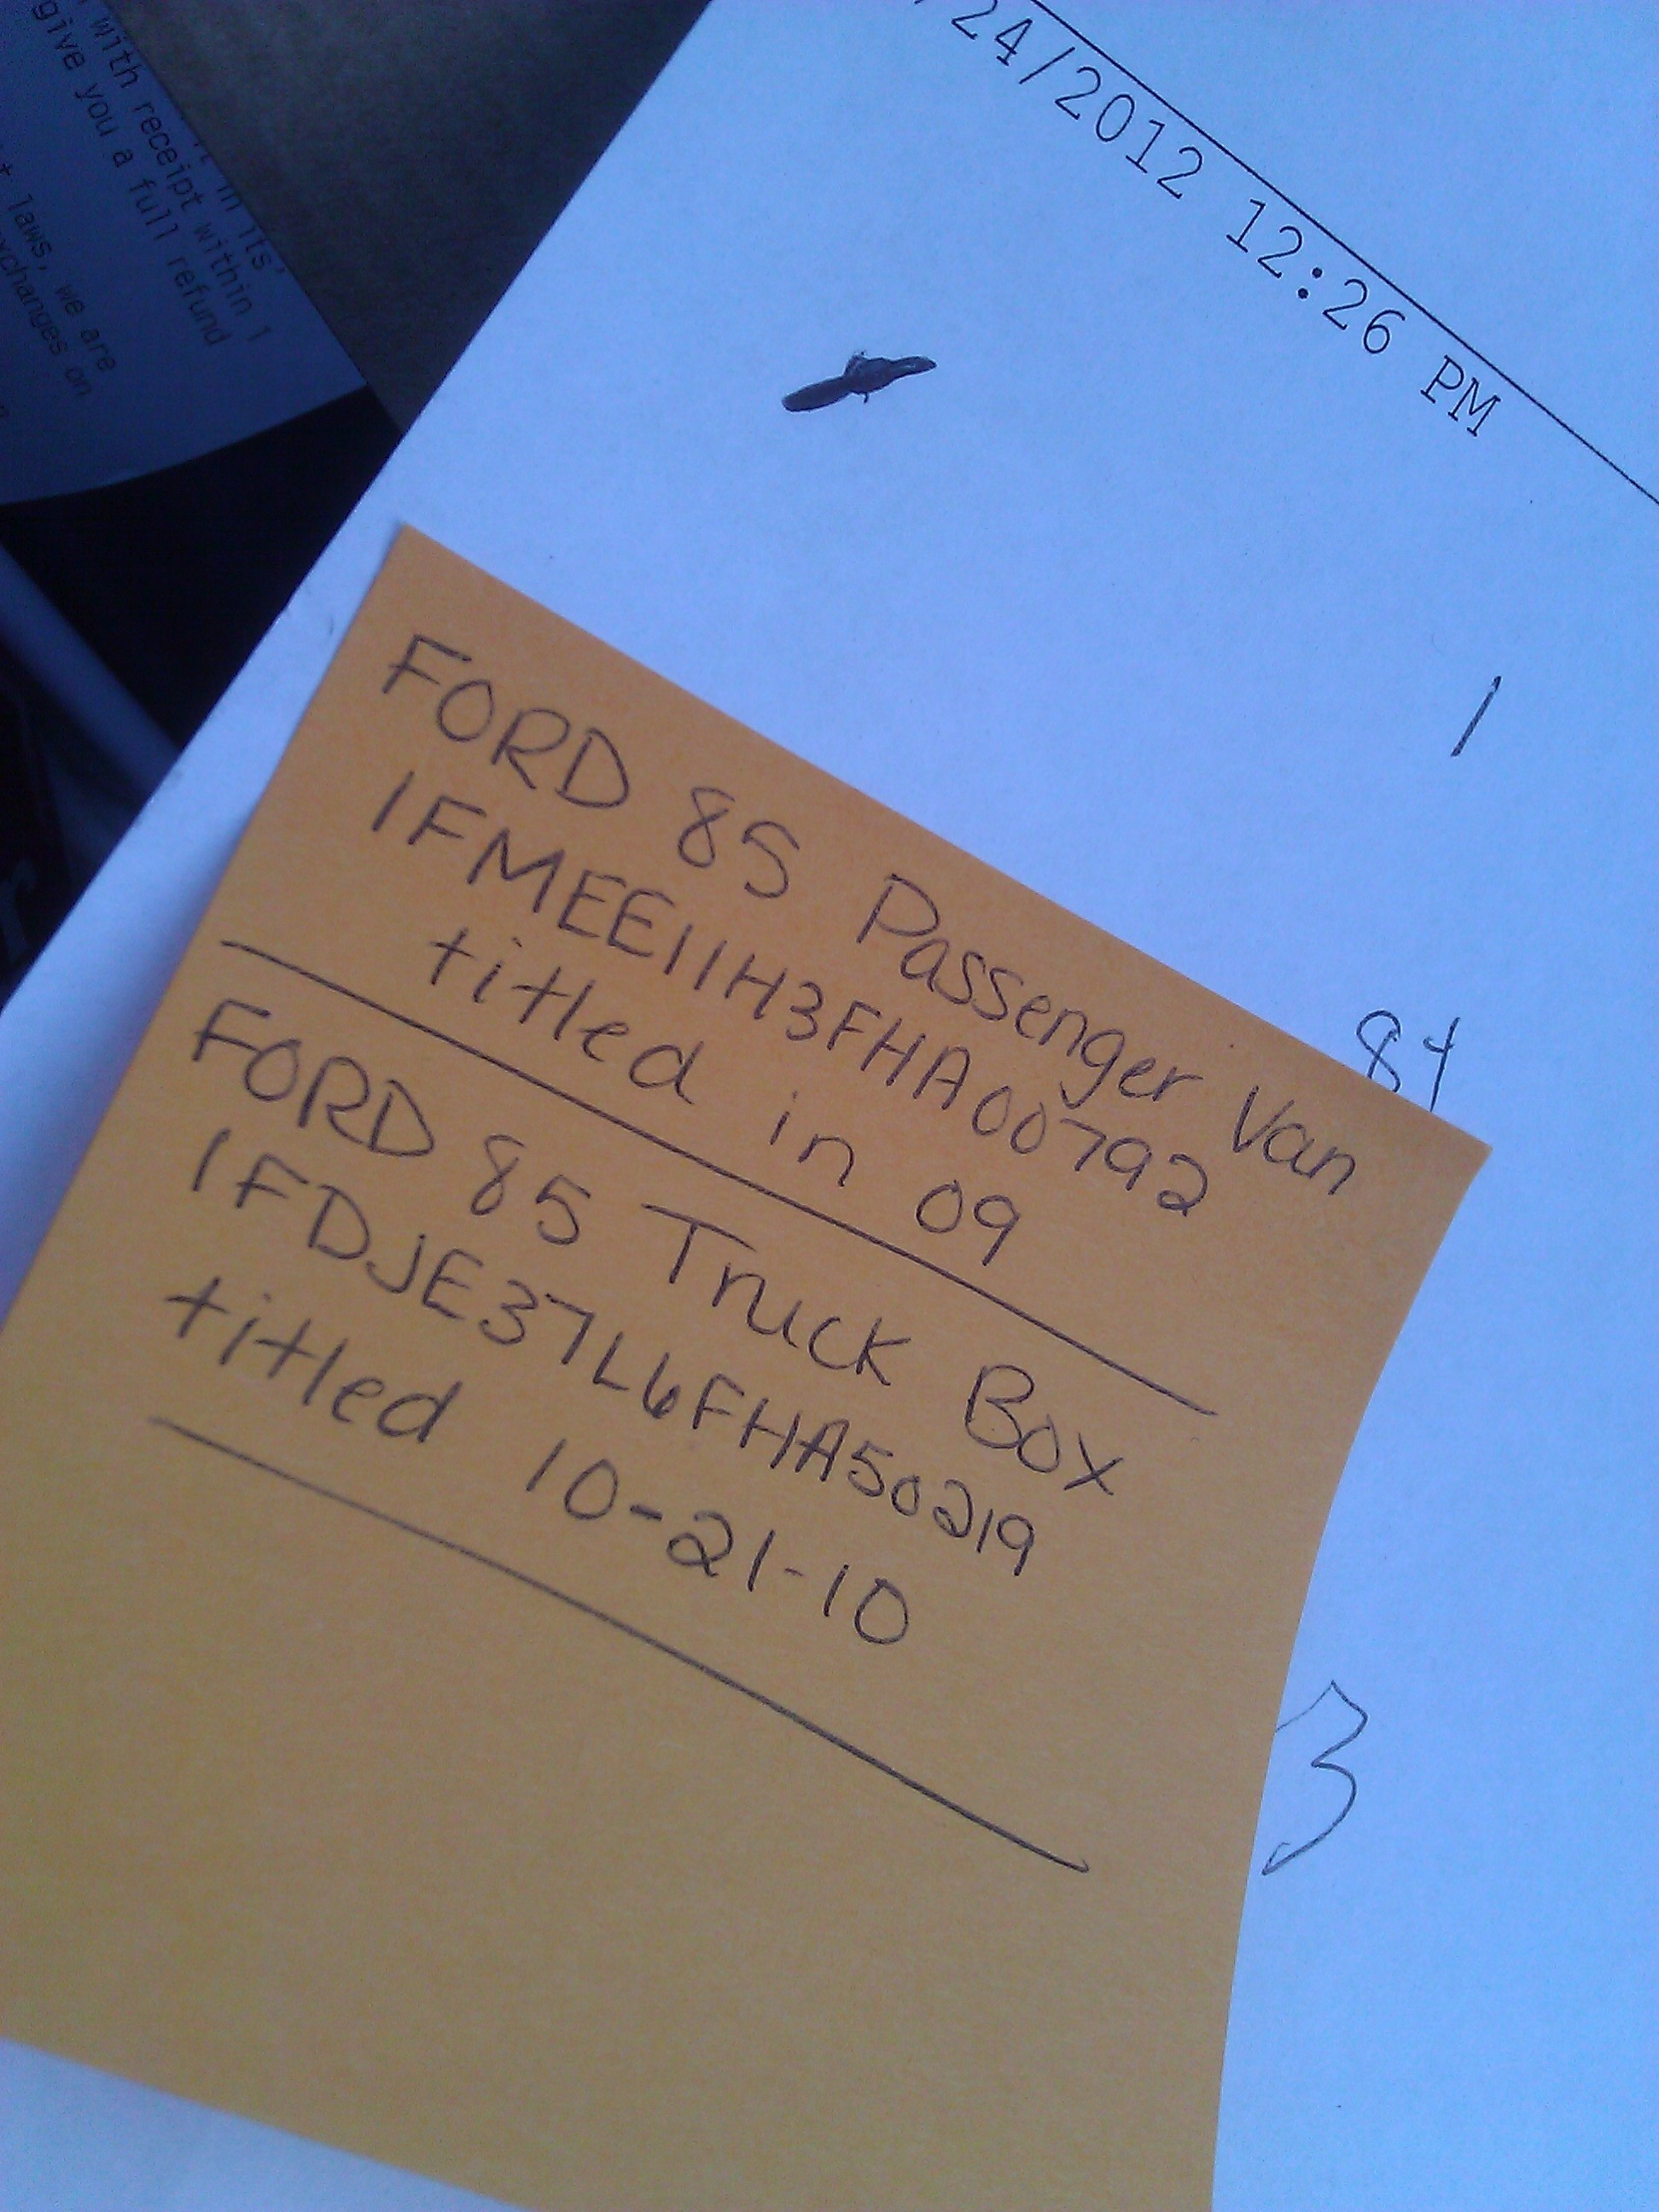 in its'
with receipt within 1
give you a full refund
laws, we are
exchanges on
24/2012 12:26 PM
1
84
3
FORD 85 Passenger Van
1FMEE11H3FHA00792
titled in 09
FORD 85 Truck Box
1FDJE37L6FHA50219
titled 10-21-10